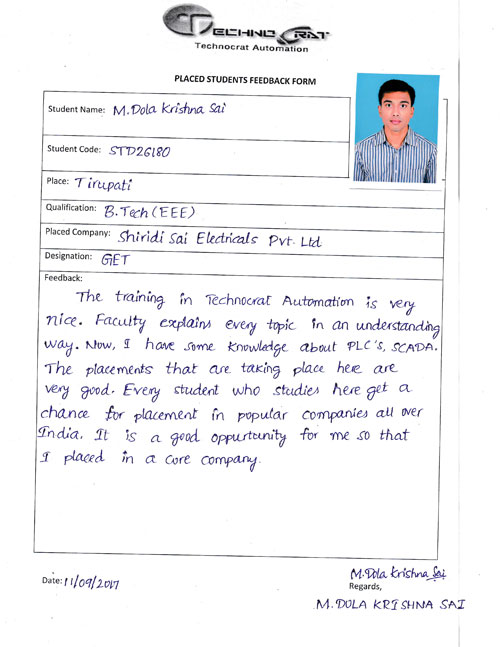 TECHNOCRAT
Technocrat Automation
PLACED STUDENTS FEEDBACK FORM
Student Name: M.Dola Krishna Sai
Student Code: STD26180
Place: Tirupati
Qualification: B.Tech (EEE)
Placed Company: Shiridi Sai Electricals Pvt. Ltd
Designation: GET
Feedback:
The training in Technocrat Automation is very
nice. Faculty explains every topic in an understanding
way. Now, I have some knowledge about PLC's, SCADA.
The placements that are taking place here are
very good. Every student who studies here get a
chance for placement in popular companies all over
India. It is a good oppurtunity for me so that
I placed in a core company.
Date: 11/09/2017
M.Dola Krishna Sai
Regards,
M. DOLA KRISHNA SAI